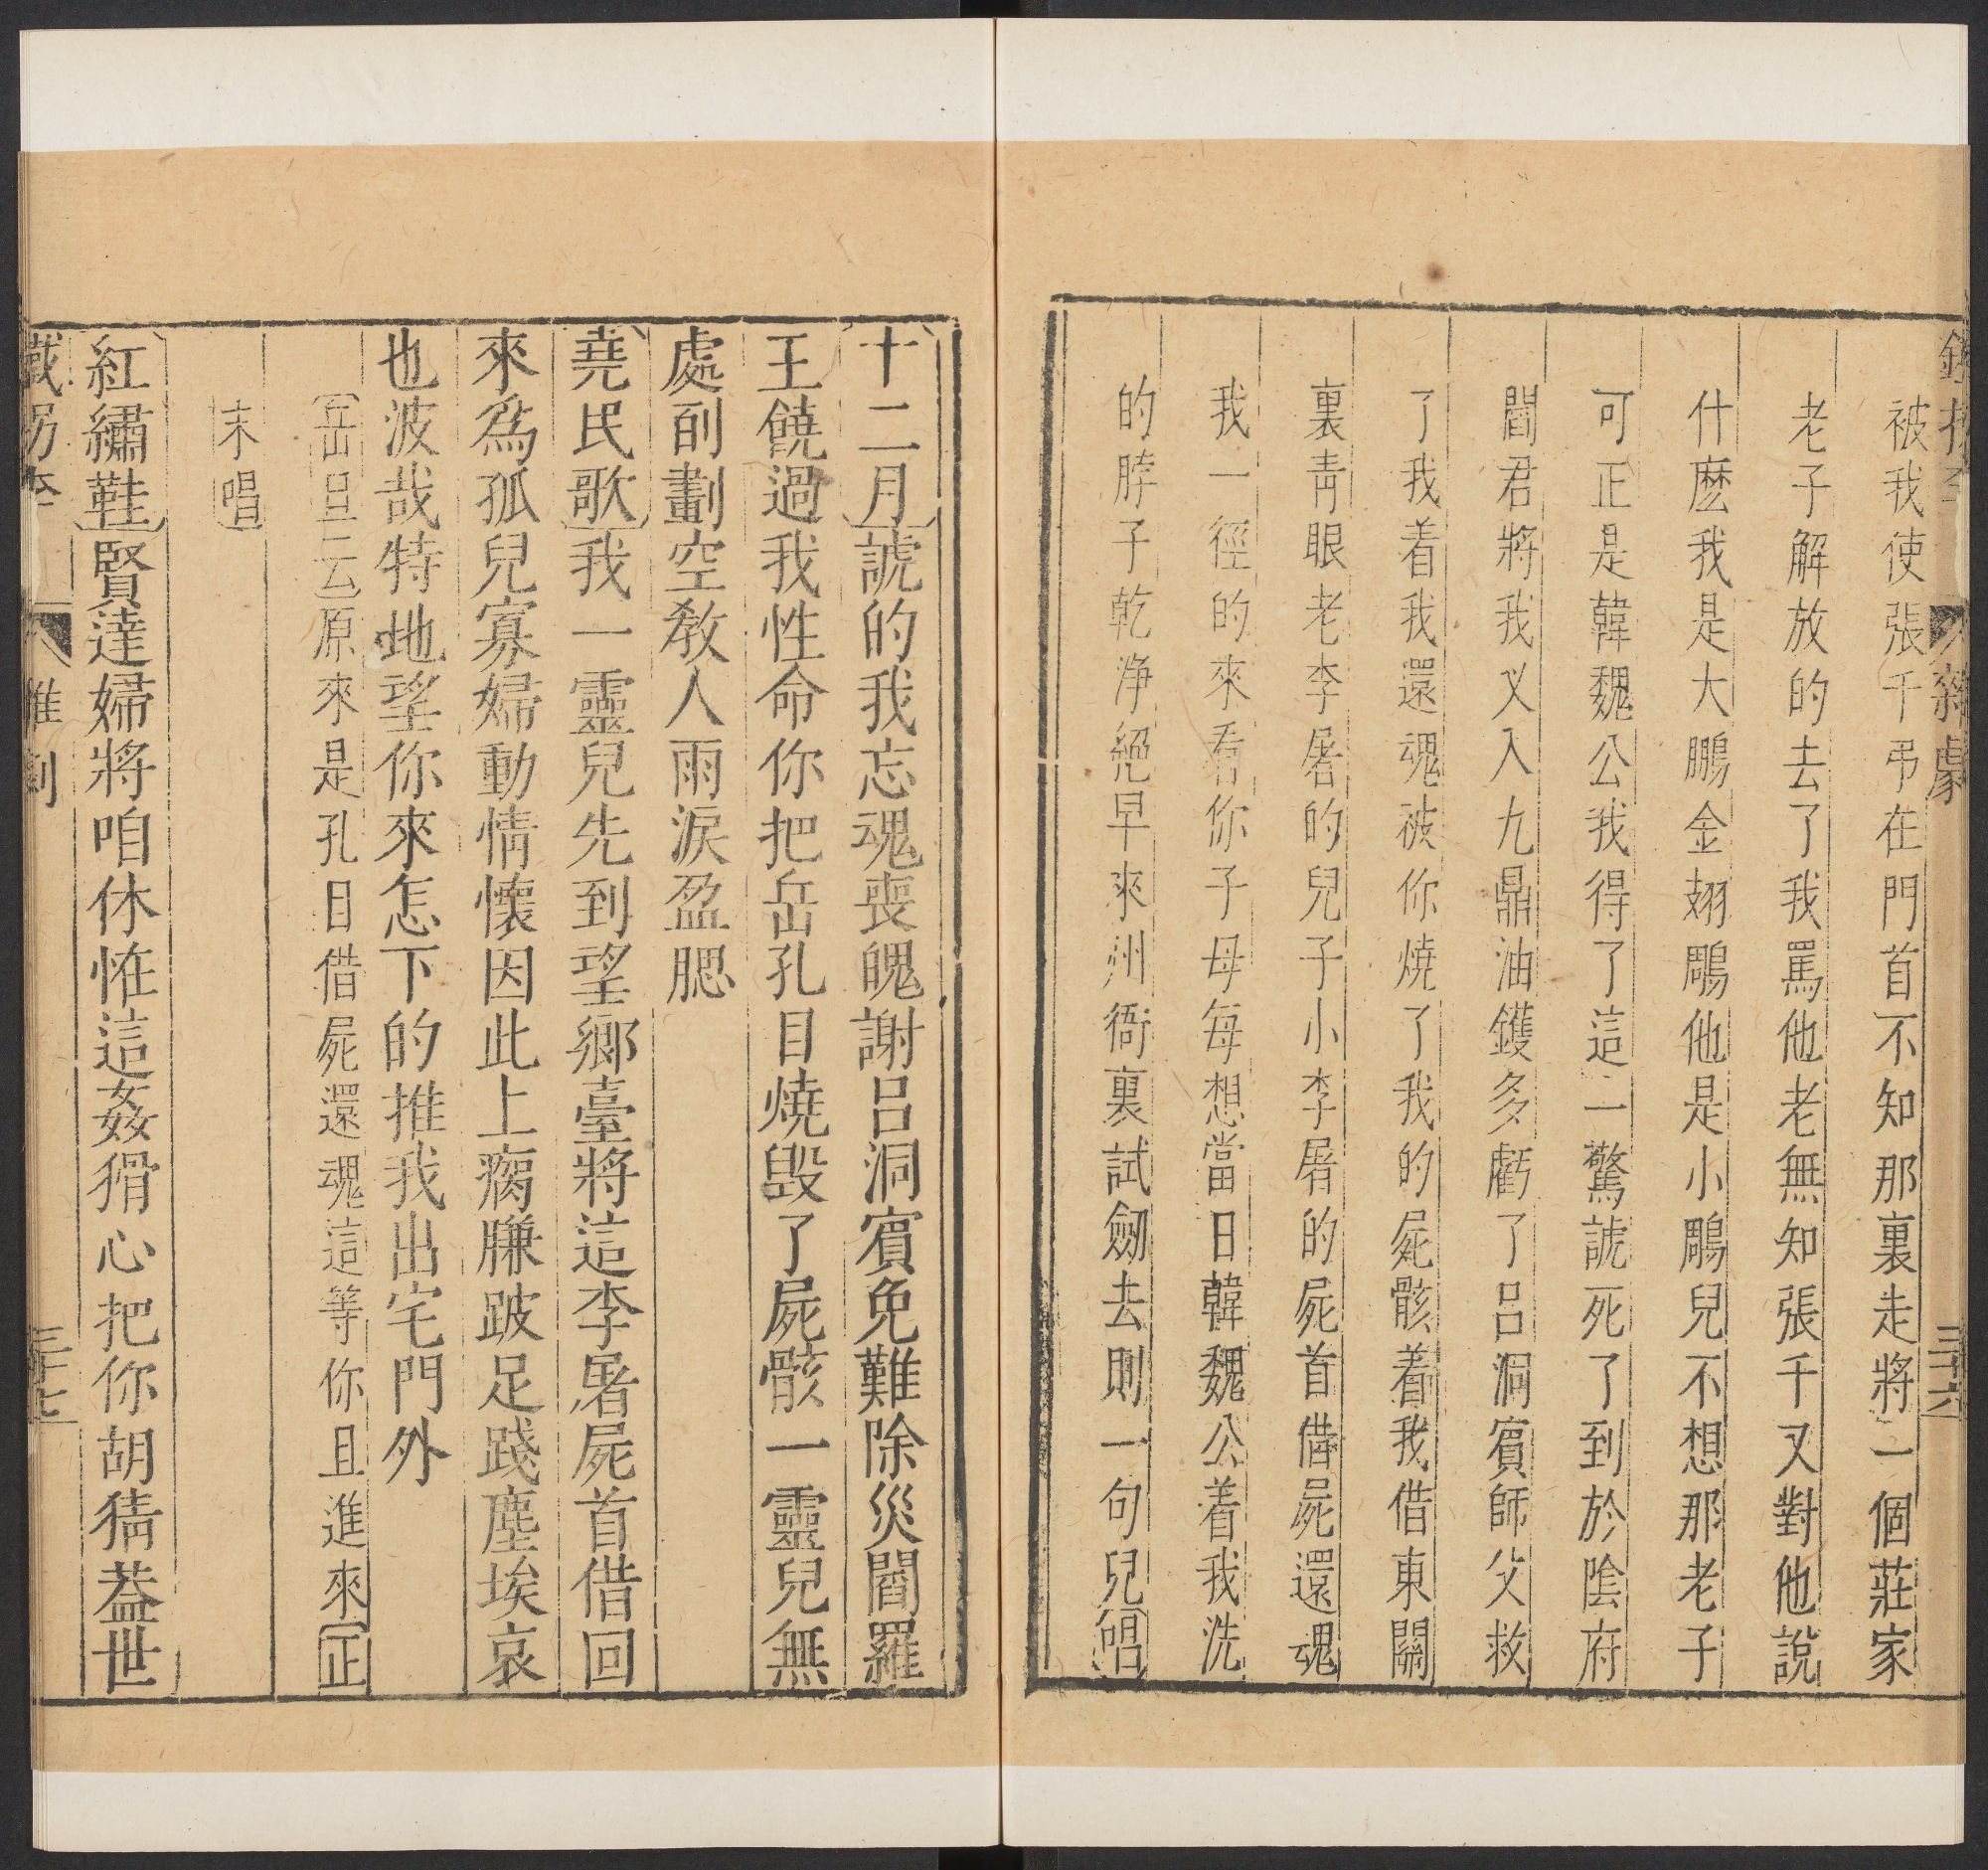 雜劇
三十六
被我使張千弔在門首不知那裏走將一個莊家
老子解放的去了我罵他老無知張千又對他說
什麽我是大鵬金翅鵰他是小鵰兒不想那老子
可正是韓魏公我得了這一驚諕死了到於陰府
閻君將我乂入九鼎油鑊多虧了吕洞賓師父救
了我着我還魂被你燒了我的屍骸着我借東關
裏靑眼老李屠的兒子小李屠的屍首借屍還魂
我一徑的來看你子母每想當日韓魏公着我洗
的脖子乾淨絕早來州衙裏試劒去則一句兒〔唱〕
〔十二月〕諕的我忘魂喪魄謝呂洞賓免難除災閻羅
王饒過我性命你把岳孔目燒毁了屍骸一靈兒無
處刮劃空敎人雨淚盈腮
〔堯民歌〕我一靈兒先到望鄉臺將這李屠屍首借回
來爲孤兒寡婦動情懷因此上瘸臁跛足踐塵埃哀
也波哉特地望你來怎下的推我出宅門外
〔岳旦云〕原來是孔目借屍還魂這等你且進來〔正
末唱〕
〔紅繡鞋〕賢達婦將咱休恠這姦猾心把你胡猜葢世
三十七